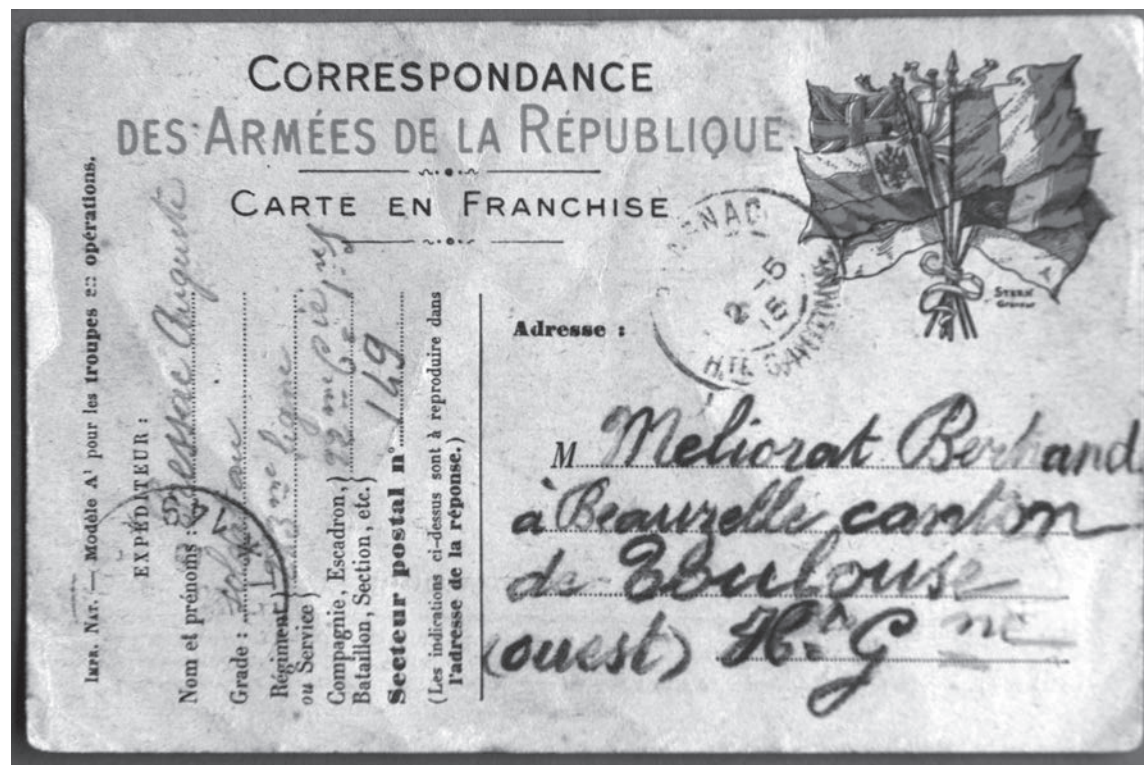 CORRESPONDANCE
DES ARMÉES DE LA RÉPUBLIQUE
CARTE EN FRANCHISE
IMPR. NAT. — Modèle A¹ pour les troupes en opérations.
EXPÉDITEUR :
Nom et prénoms : Auguste
Grade :
Régiment
ou Service ligne
Compagnie, Escadron,
Bataillon, Section, etc. 22me Cie
Secteur postal n° 149
(Les indications ci-dessus sont à reproduire dans
l'adresse de la réponse.)
HTE GARONNE
2 -5
STERN
Graveur
Adresse :
M Meliorat Bertrand
à Beauzelle canton
de Toulouse
(ouest) Hte G ne